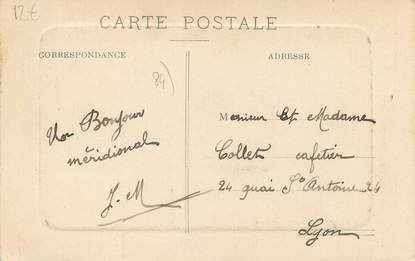 12€
CARTE POSTALE
CORRESPONDANCE
ADRESSE
84)
Un Bonjour
méridional
J. M
Monsieur Et Madame
Collet cafetier
24 quai St Antoine 24
Lyon